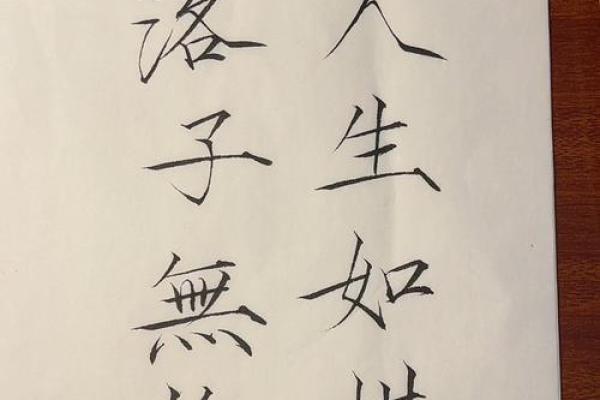 人生如
落子無